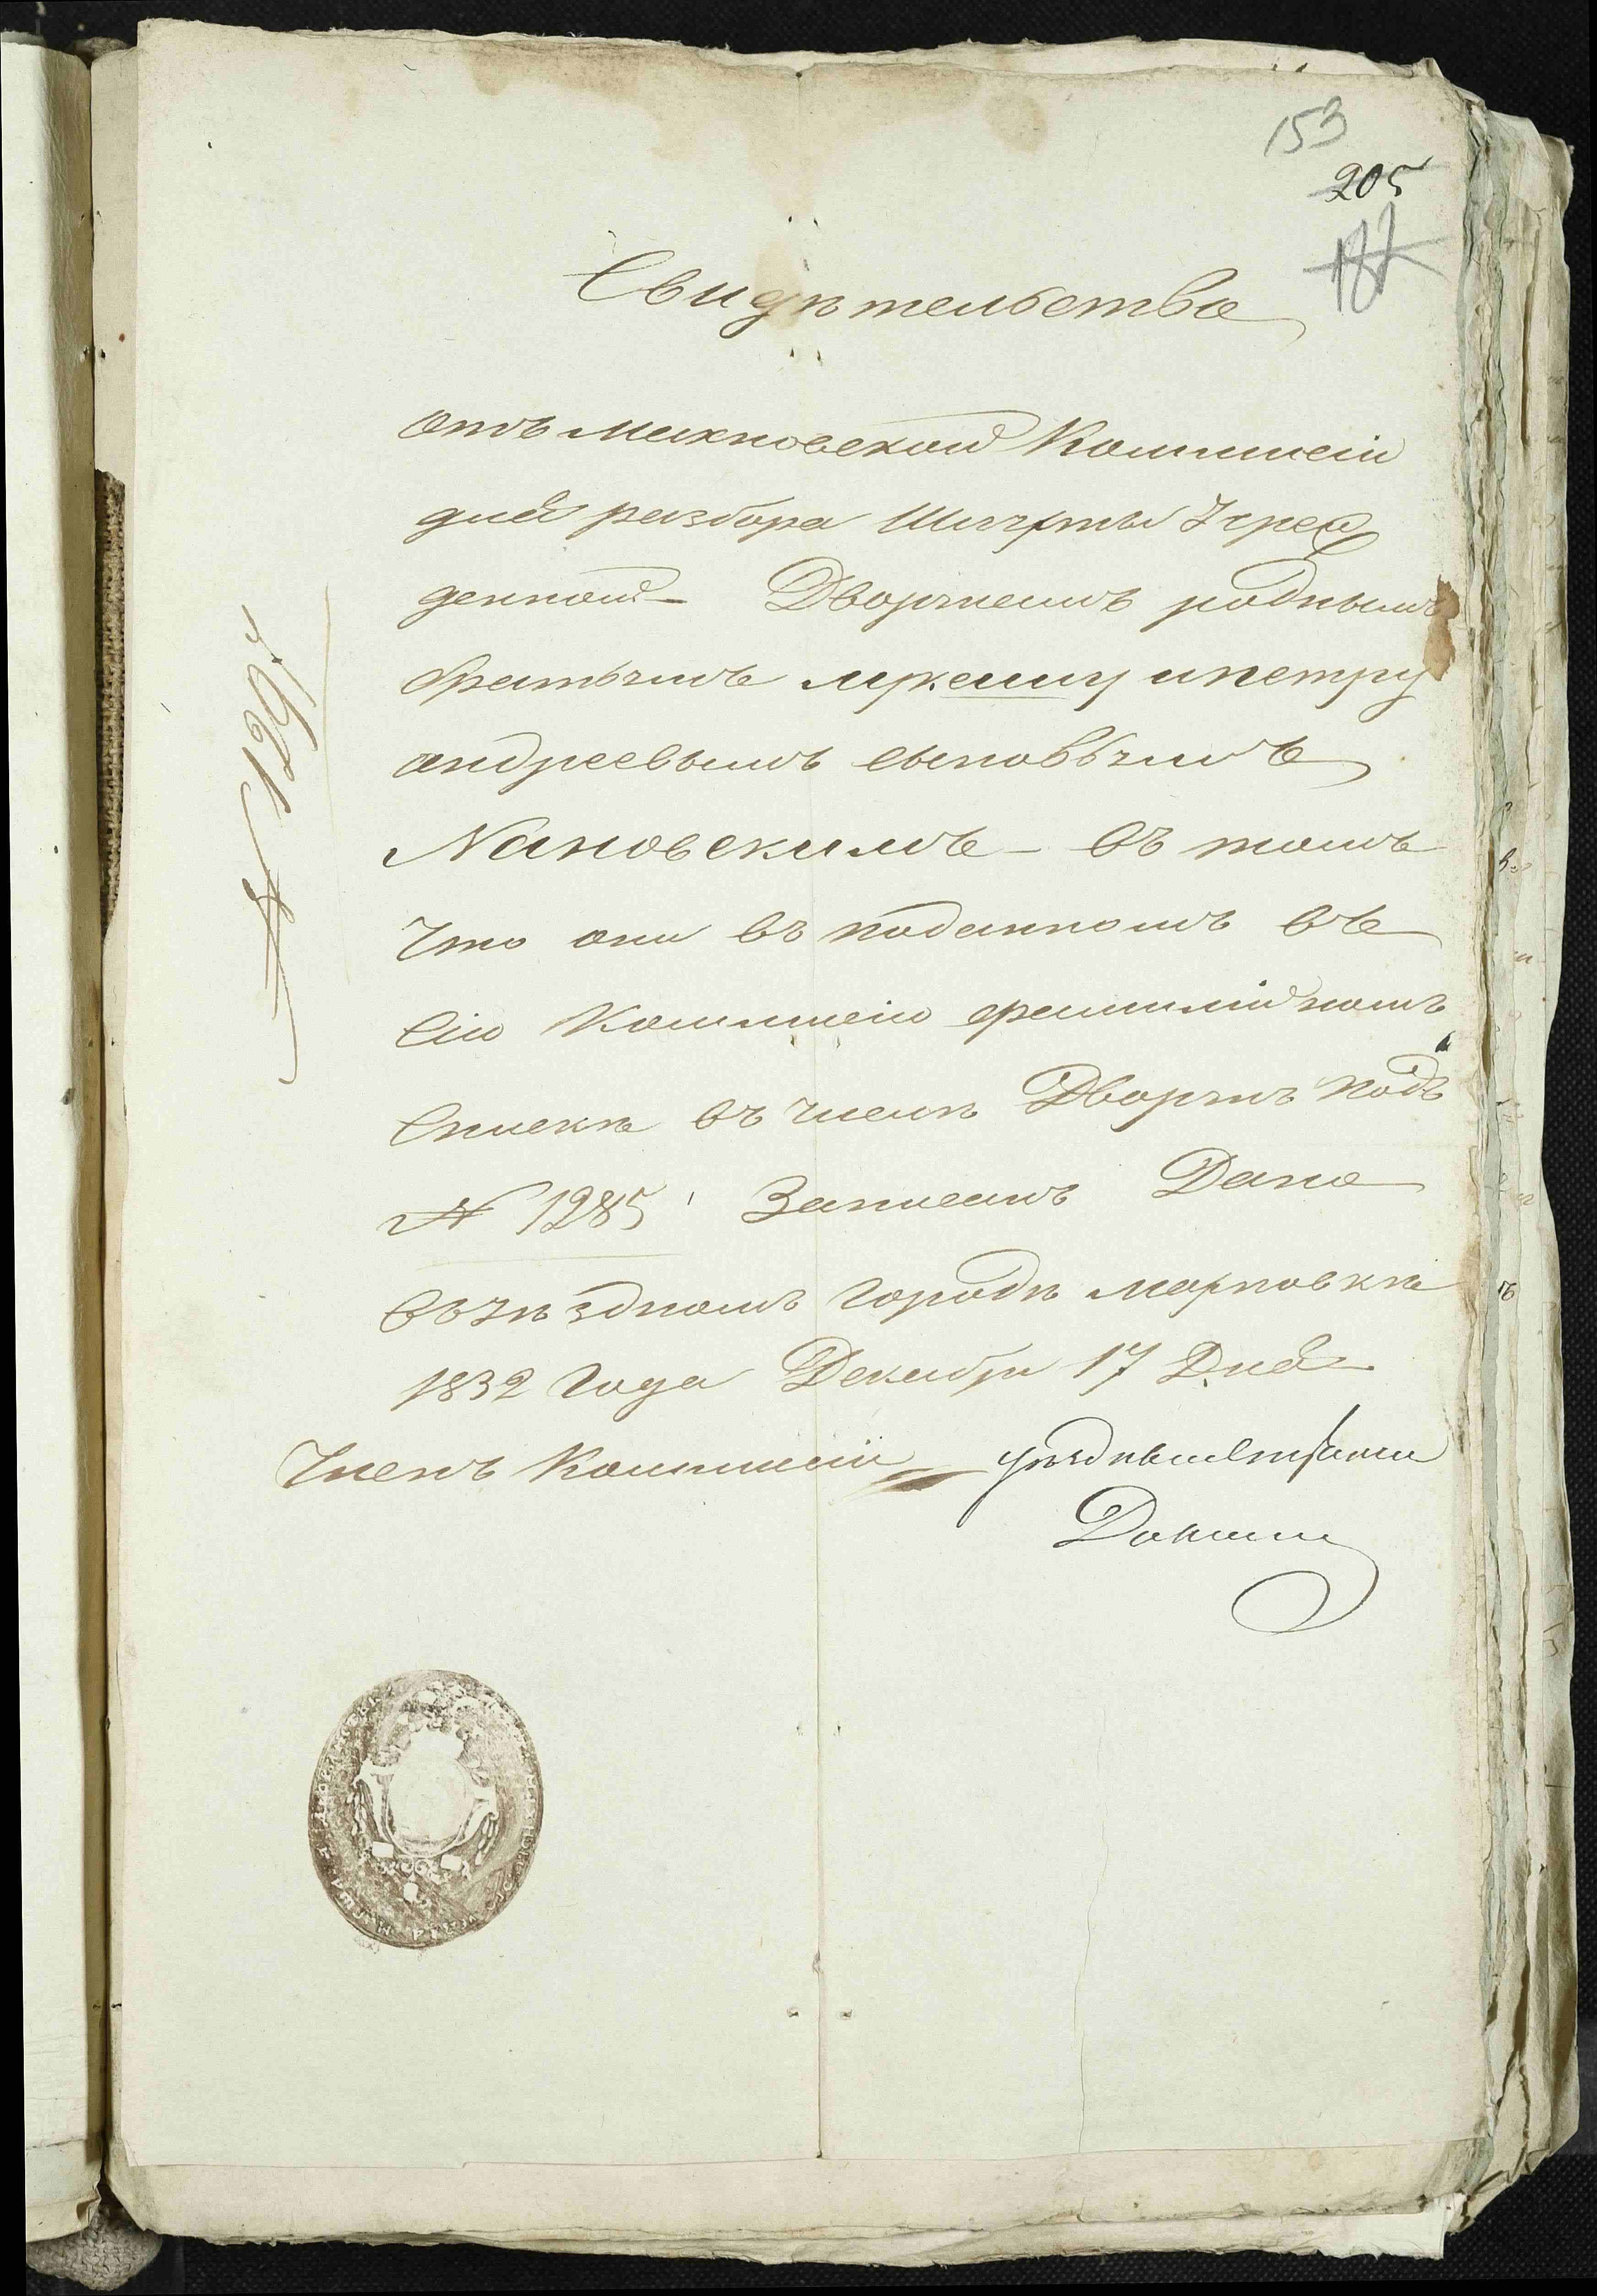 153
205
Свидѣтельство
отъ Махновской Коммисіи
для разбора Шляхты Учреж
денной – Дворянамъ роднымъ
братьямъ лукашу и петру
андреевымъ сыновьямъ
Яновскимъ – въ томъ
Что они въ поданномъ въ
Сію Коммисію фамилійномъ
Спискѣ въ числѣ Дворянъ подъ
№ 1285 Записаны Дано
въ уѣздномъ городѣ махновкѣ
1832 года Декабря 17 Дня
Членъ Коммисіи уѣздный
№ 1295